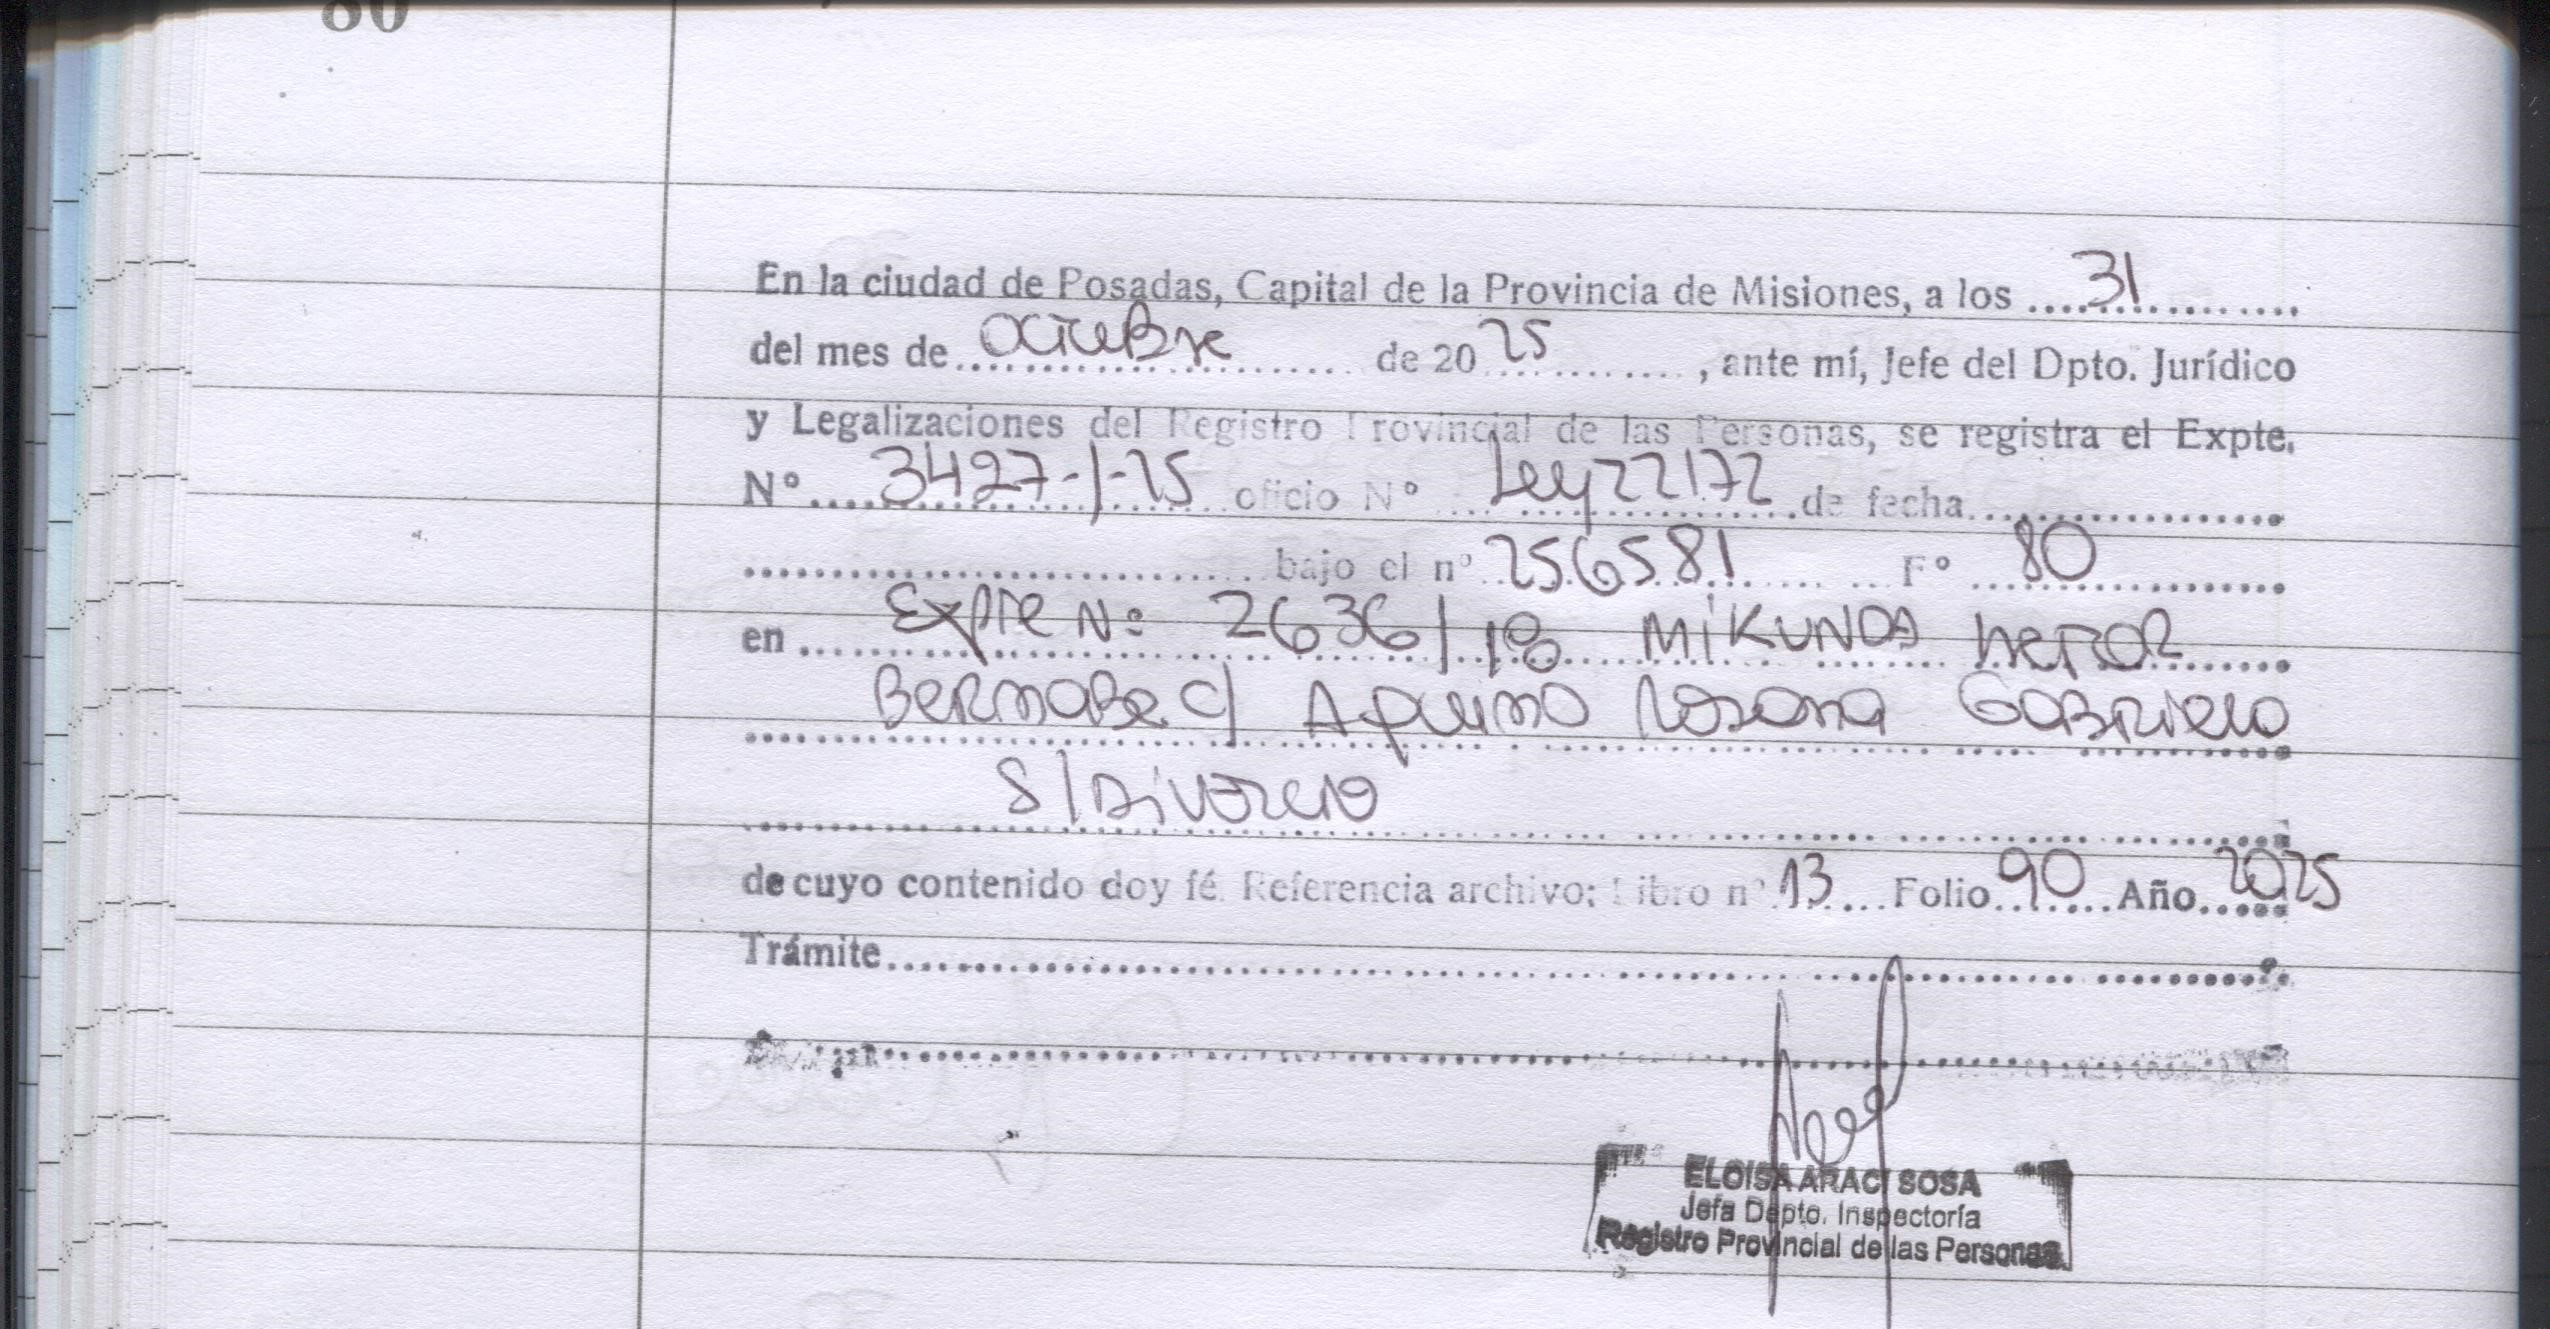 80
En la ciudad de Posadas, Capital de la Provincia de Misiones, a los 31
del mes de octubre de 2025, ante mí, Jefe del Dpto. Jurídico
y Legalizaciones del Registro Provincial de las Personas, se registra el Expte.
Nº 3427-/-25 oficio Nº Ley 22172 de fecha
bajo el nº 256581 Fº 80
en Expte Nº 2636/18 MiKUNDA
BERNABE c/ Aquino Rosana Gabriela
S/Divorcio
de cuyo contenido doy fé. Referencia archivo: Libro nº 13 Folio 90 Año 2025
Trámite
ELOISA ARACI SOSA
Jefa Depto. Inspectoría
Registro Provincial de las Personas